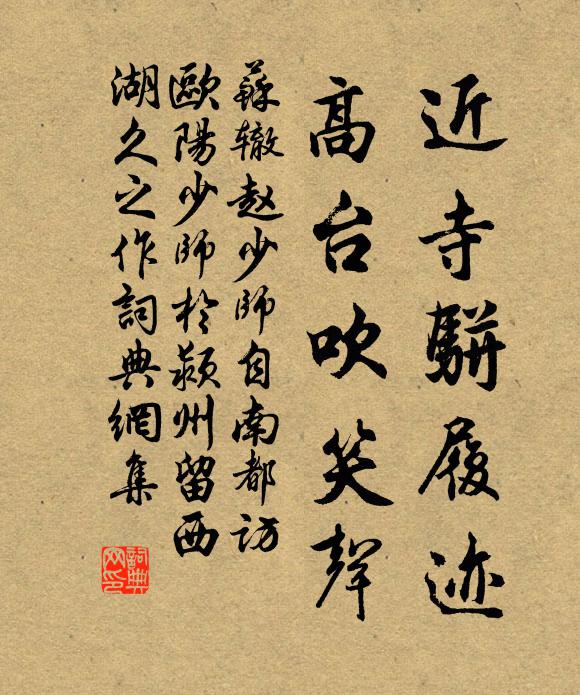 近寺駢履迹
高台吹笑聲
蘇辙赵少師自南都访
歐陽少師於颍州留西
湖久之作詞典網集
詞典网印